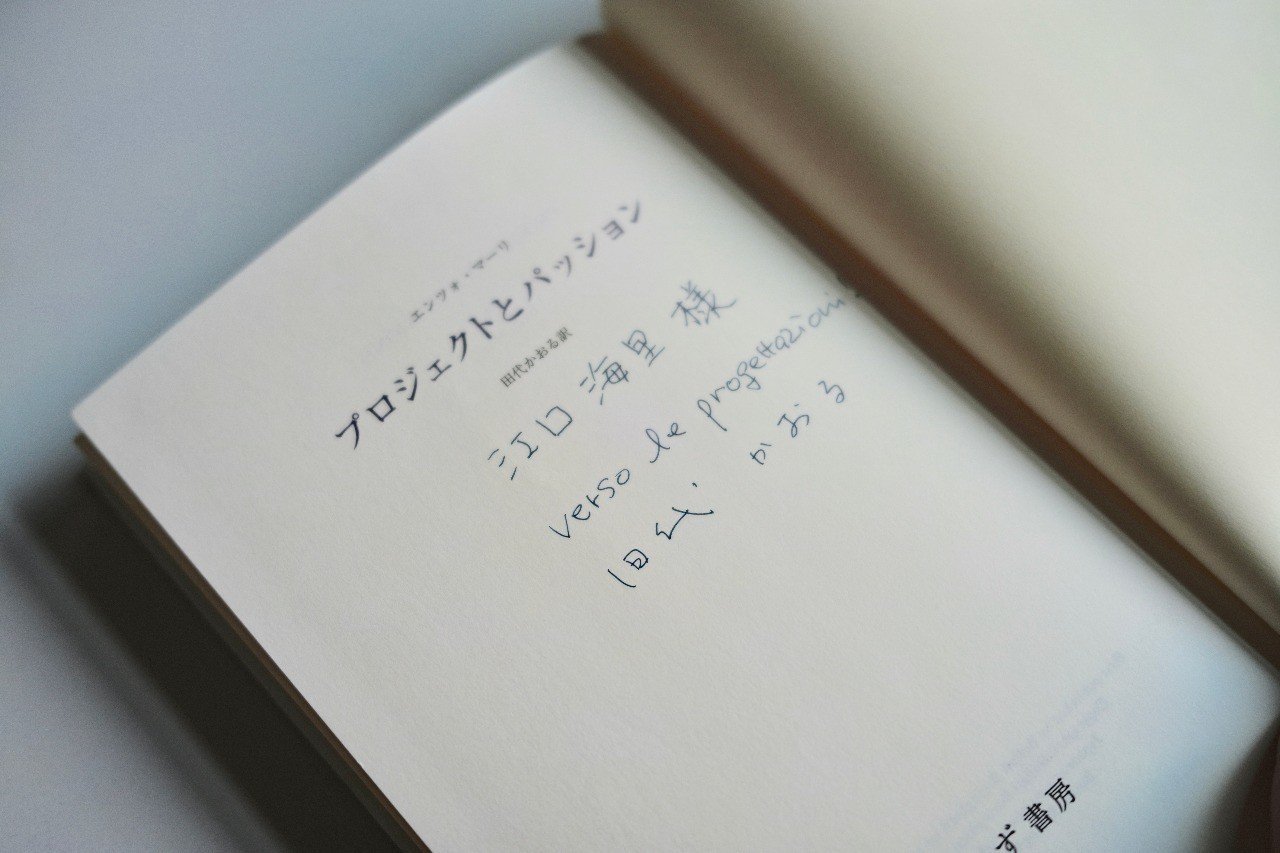 エンツォ・マーリ
プロジェクトとパッション
田代かおる訳
江口 海里 様
verso le progettazioni
田代 かおる
ず書房